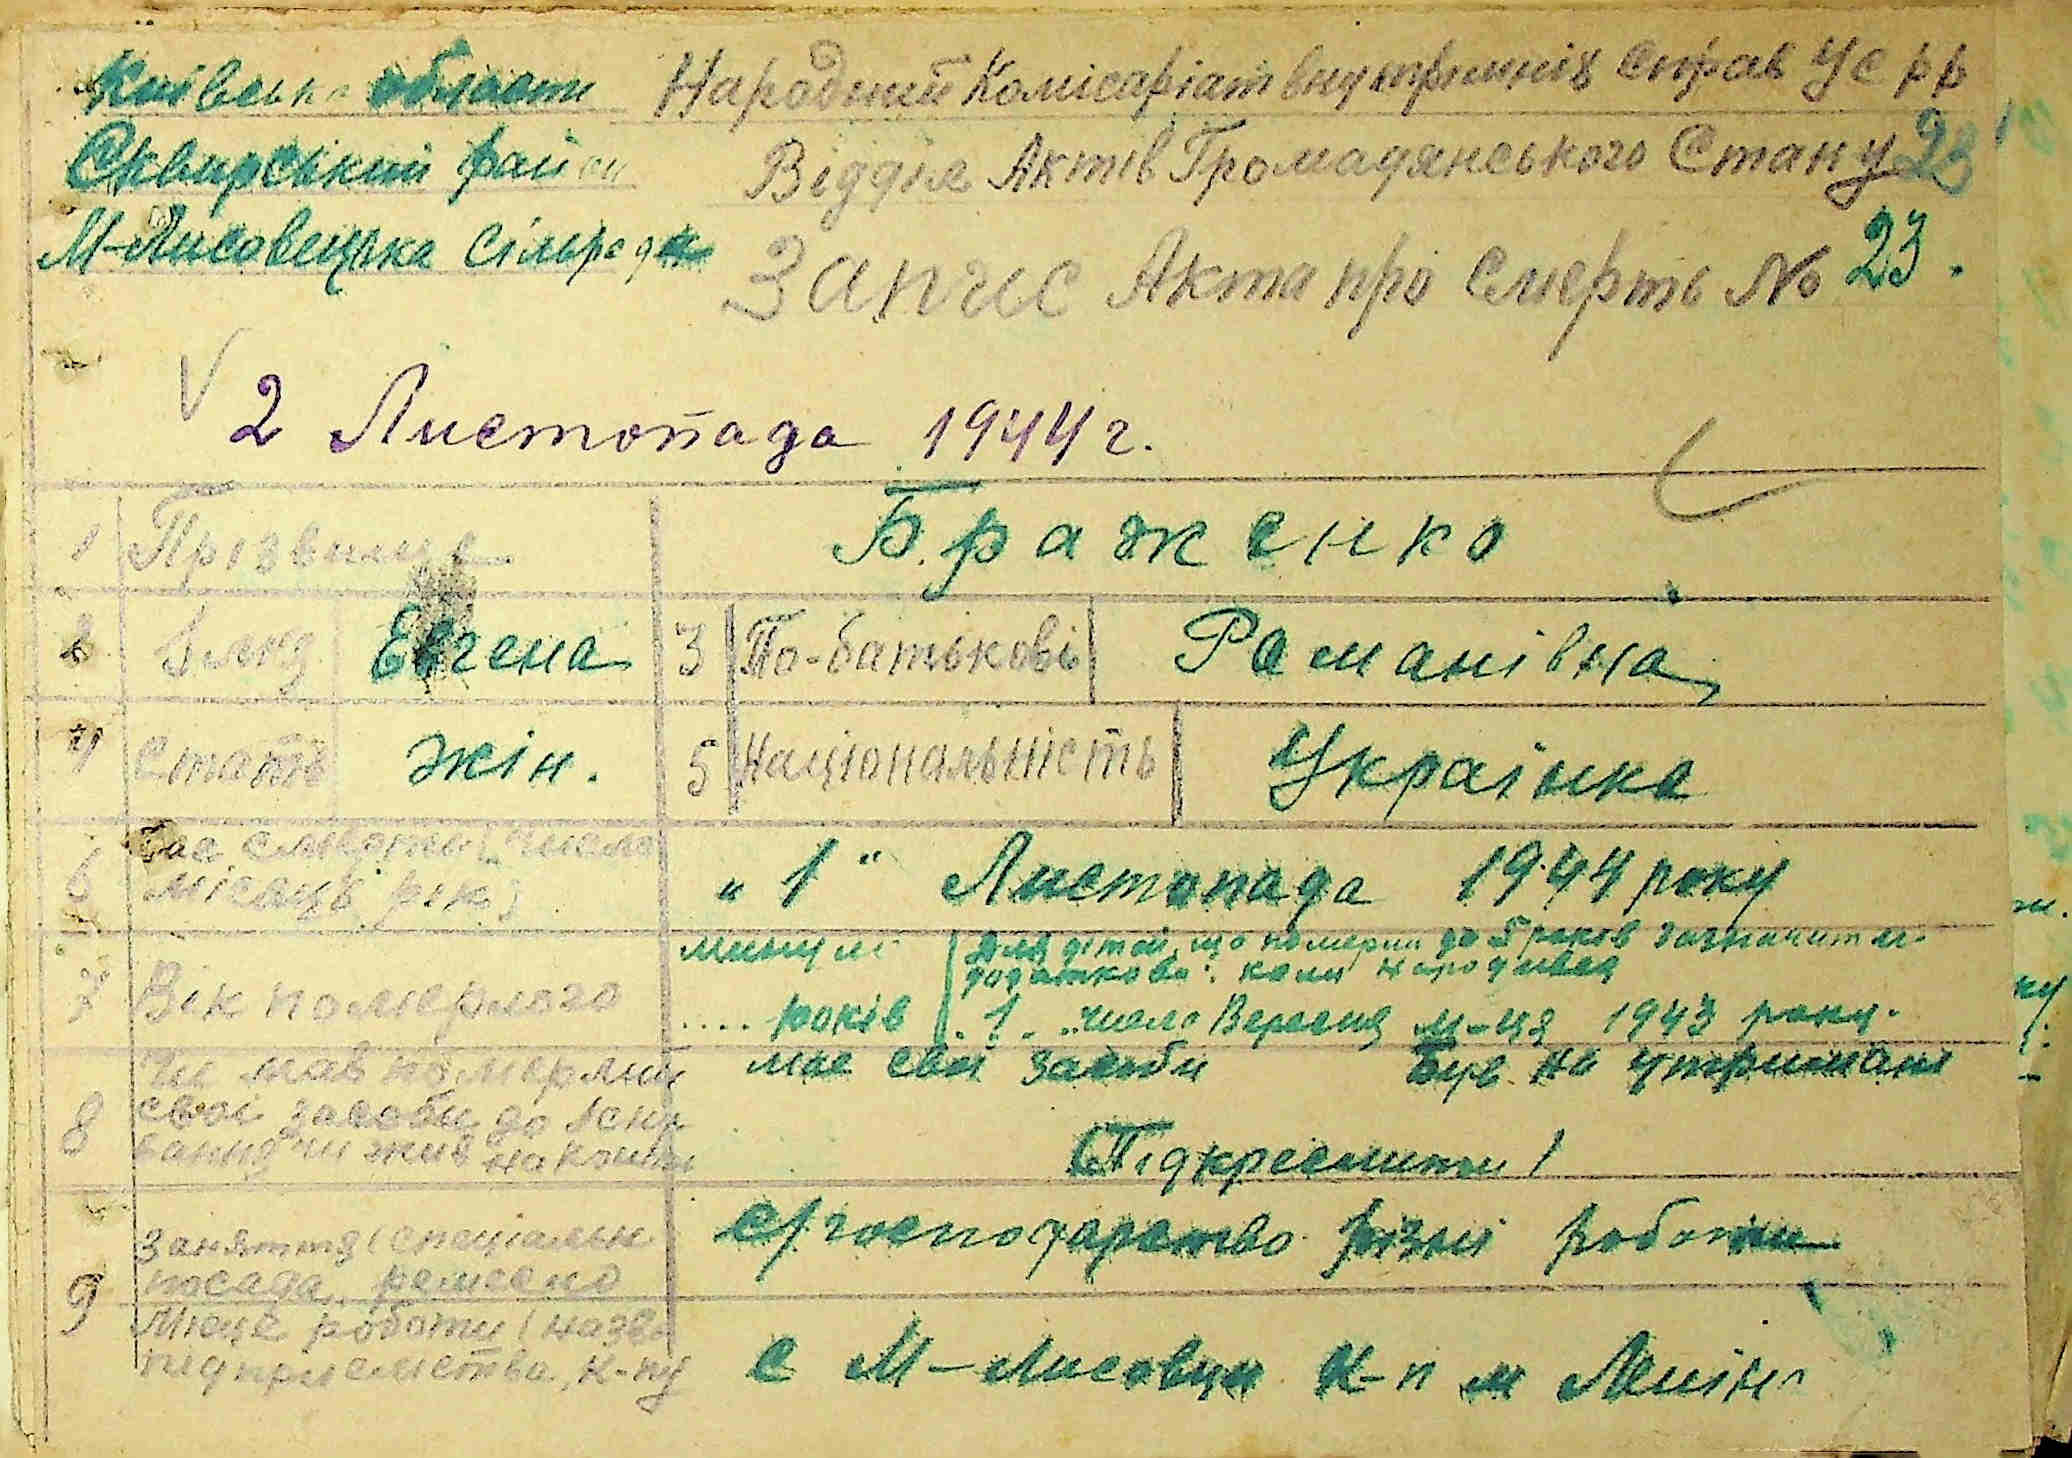 Київська області Народний Комісаріат внутрішніх справ УСРР
Сквирський район Відділ Актів Громадянського Стану 23
М-Лисовецька сільрада Запис Акта про смерть № 23.
2 Листопада 1944 г.
1 Прізвище Браженко
2 Імя Евгена 3 По-батькові Раманівна
4 стать жін. 5 Національність Українка
6 Час смерти: число
місяць рік "1" Листопада 1944 року
7 Вік померлого минуло .... років
Для дітей, що померли до 5 років зазначити
додатково: коли народився
. 1 . число Вересня м-ця 1943 року.
8 Чи мав померлий
свої засоби до існу
вання чи жив на кошти
має свої засоби Був на утримані
(Підкреслити)
9 Заняття (спеціальн
посада, ремесло
с/господарство різні роботи
Місце роботи (назва
підприємства, к-пу
с М-Лисовци К-п м Леніна